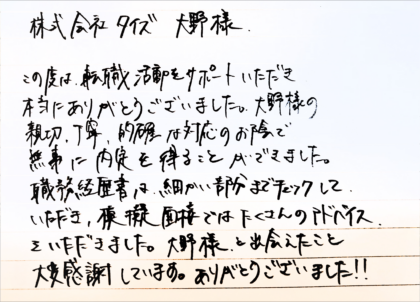 株式会社タイズ 大野様.
この度は、転職活動をサポートいただき
本当にありがとうございました。大野様の
親切、丁寧、的確な対応のお陰で
無事に内定を得ることができました。
職務経歴書は、細かい部分までチェックして
いただき、模擬面接ではたくさんのアドバイス
をいただきました。大野様と出会えたこと
大変感謝しています。ありがとうございました!!